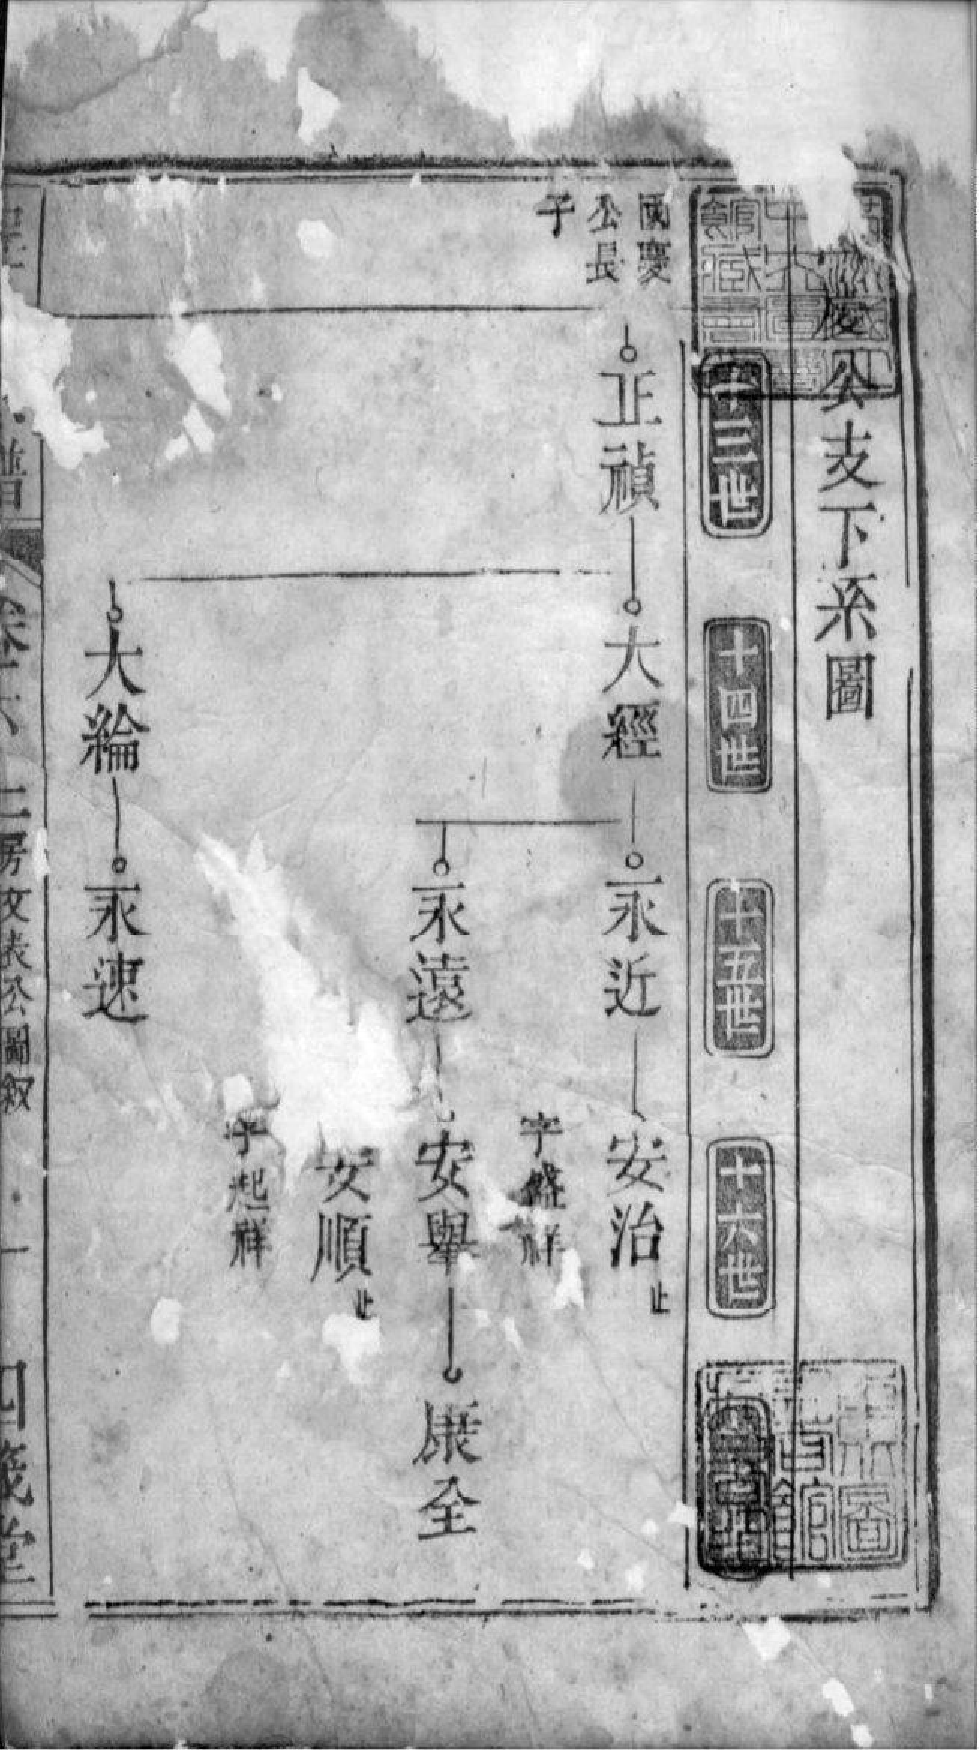 慶公支下系圖
十三世
十四世
十五世
十六世
國慶
公長
子
正禎
大經
永近
安治 止
字盛祥
永遠
安舉
康全
安順 止
字起祥
大綸
永速
譜
卷六 二房文表公圖敘 一 四箴堂